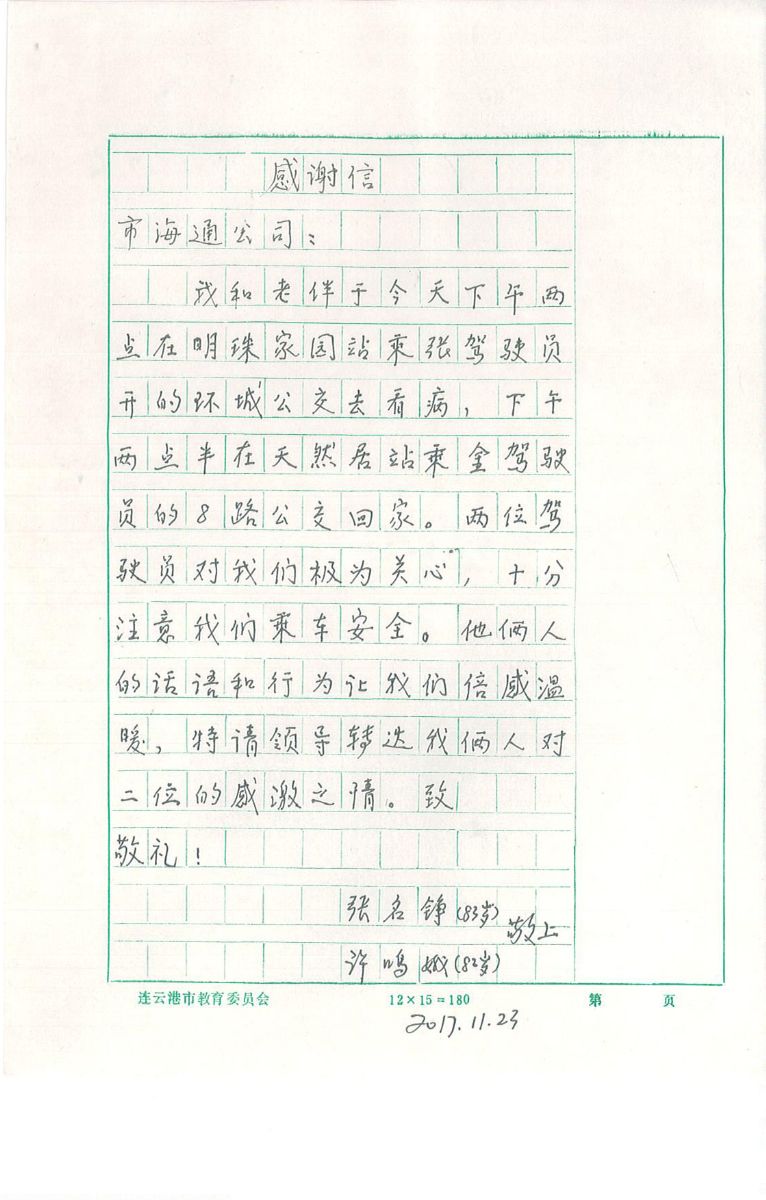 感谢信
市海通公司：
我和老伴于今天下午两
点在明珠家园站乘张驾驶员
开的环城公交去看病，下午
两点半在天然居站乘金驾驶
员的8路公交回家。两位驾
驶员对我们极为关心，十分
注意我们乘车安全。他俩人
的话语和行为让我们倍感温
暖，特请领导转达我俩人对
二位的感激之情。致
敬礼！
张名铮(83岁)
敬上
许鸣娥(82岁)
连云港市教育委员会 12×15=180 第 页
2017.11.23